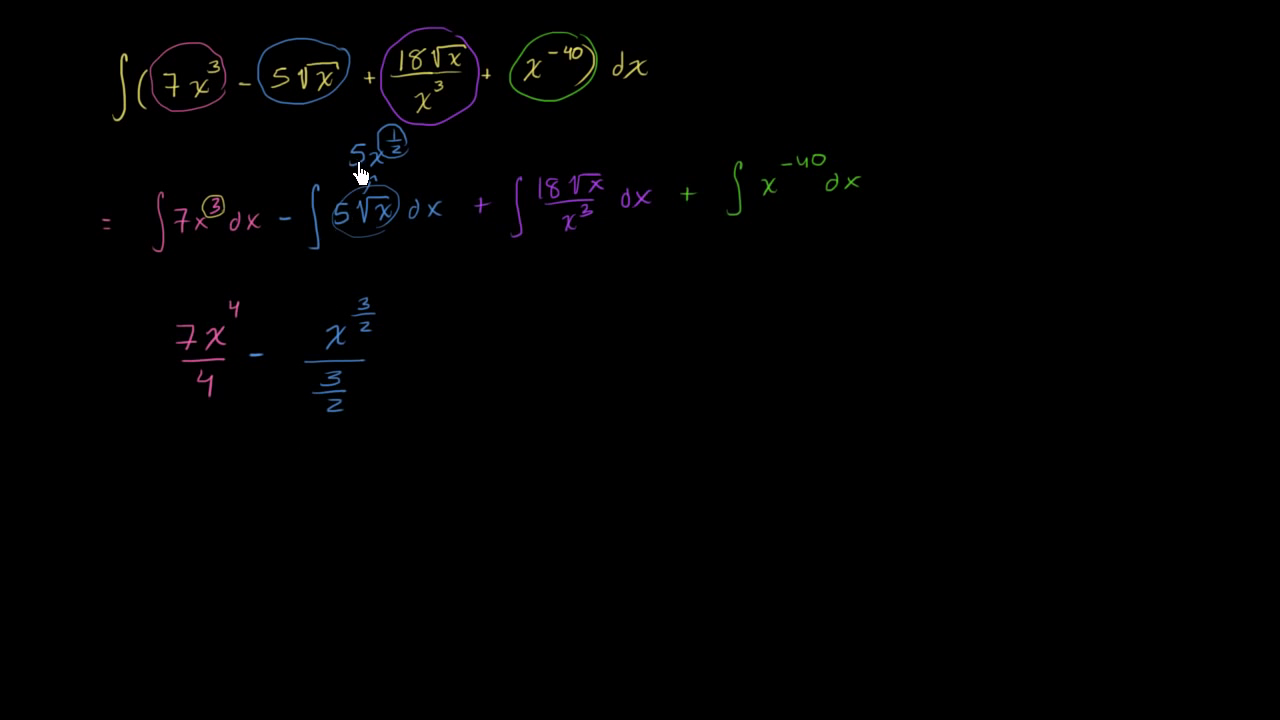 ∫(7x³ - 5√x + 18√x/x³ + x⁻⁴⁰) dx
5x^(1/2)
= ∫7x³dx - ∫5√x dx + ∫18√x/x³ dx + ∫x⁻⁴⁰dx
7x⁴/4 - x^(3/2)/(3/2)